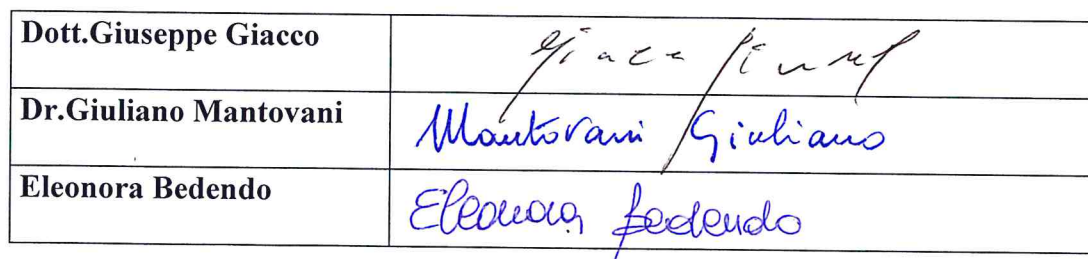 Dott.Giuseppe Giacco
Dr.Giuliano Mantovani Mantovani Giuliano
Eleonora Bedendo Eleonora Bedendo